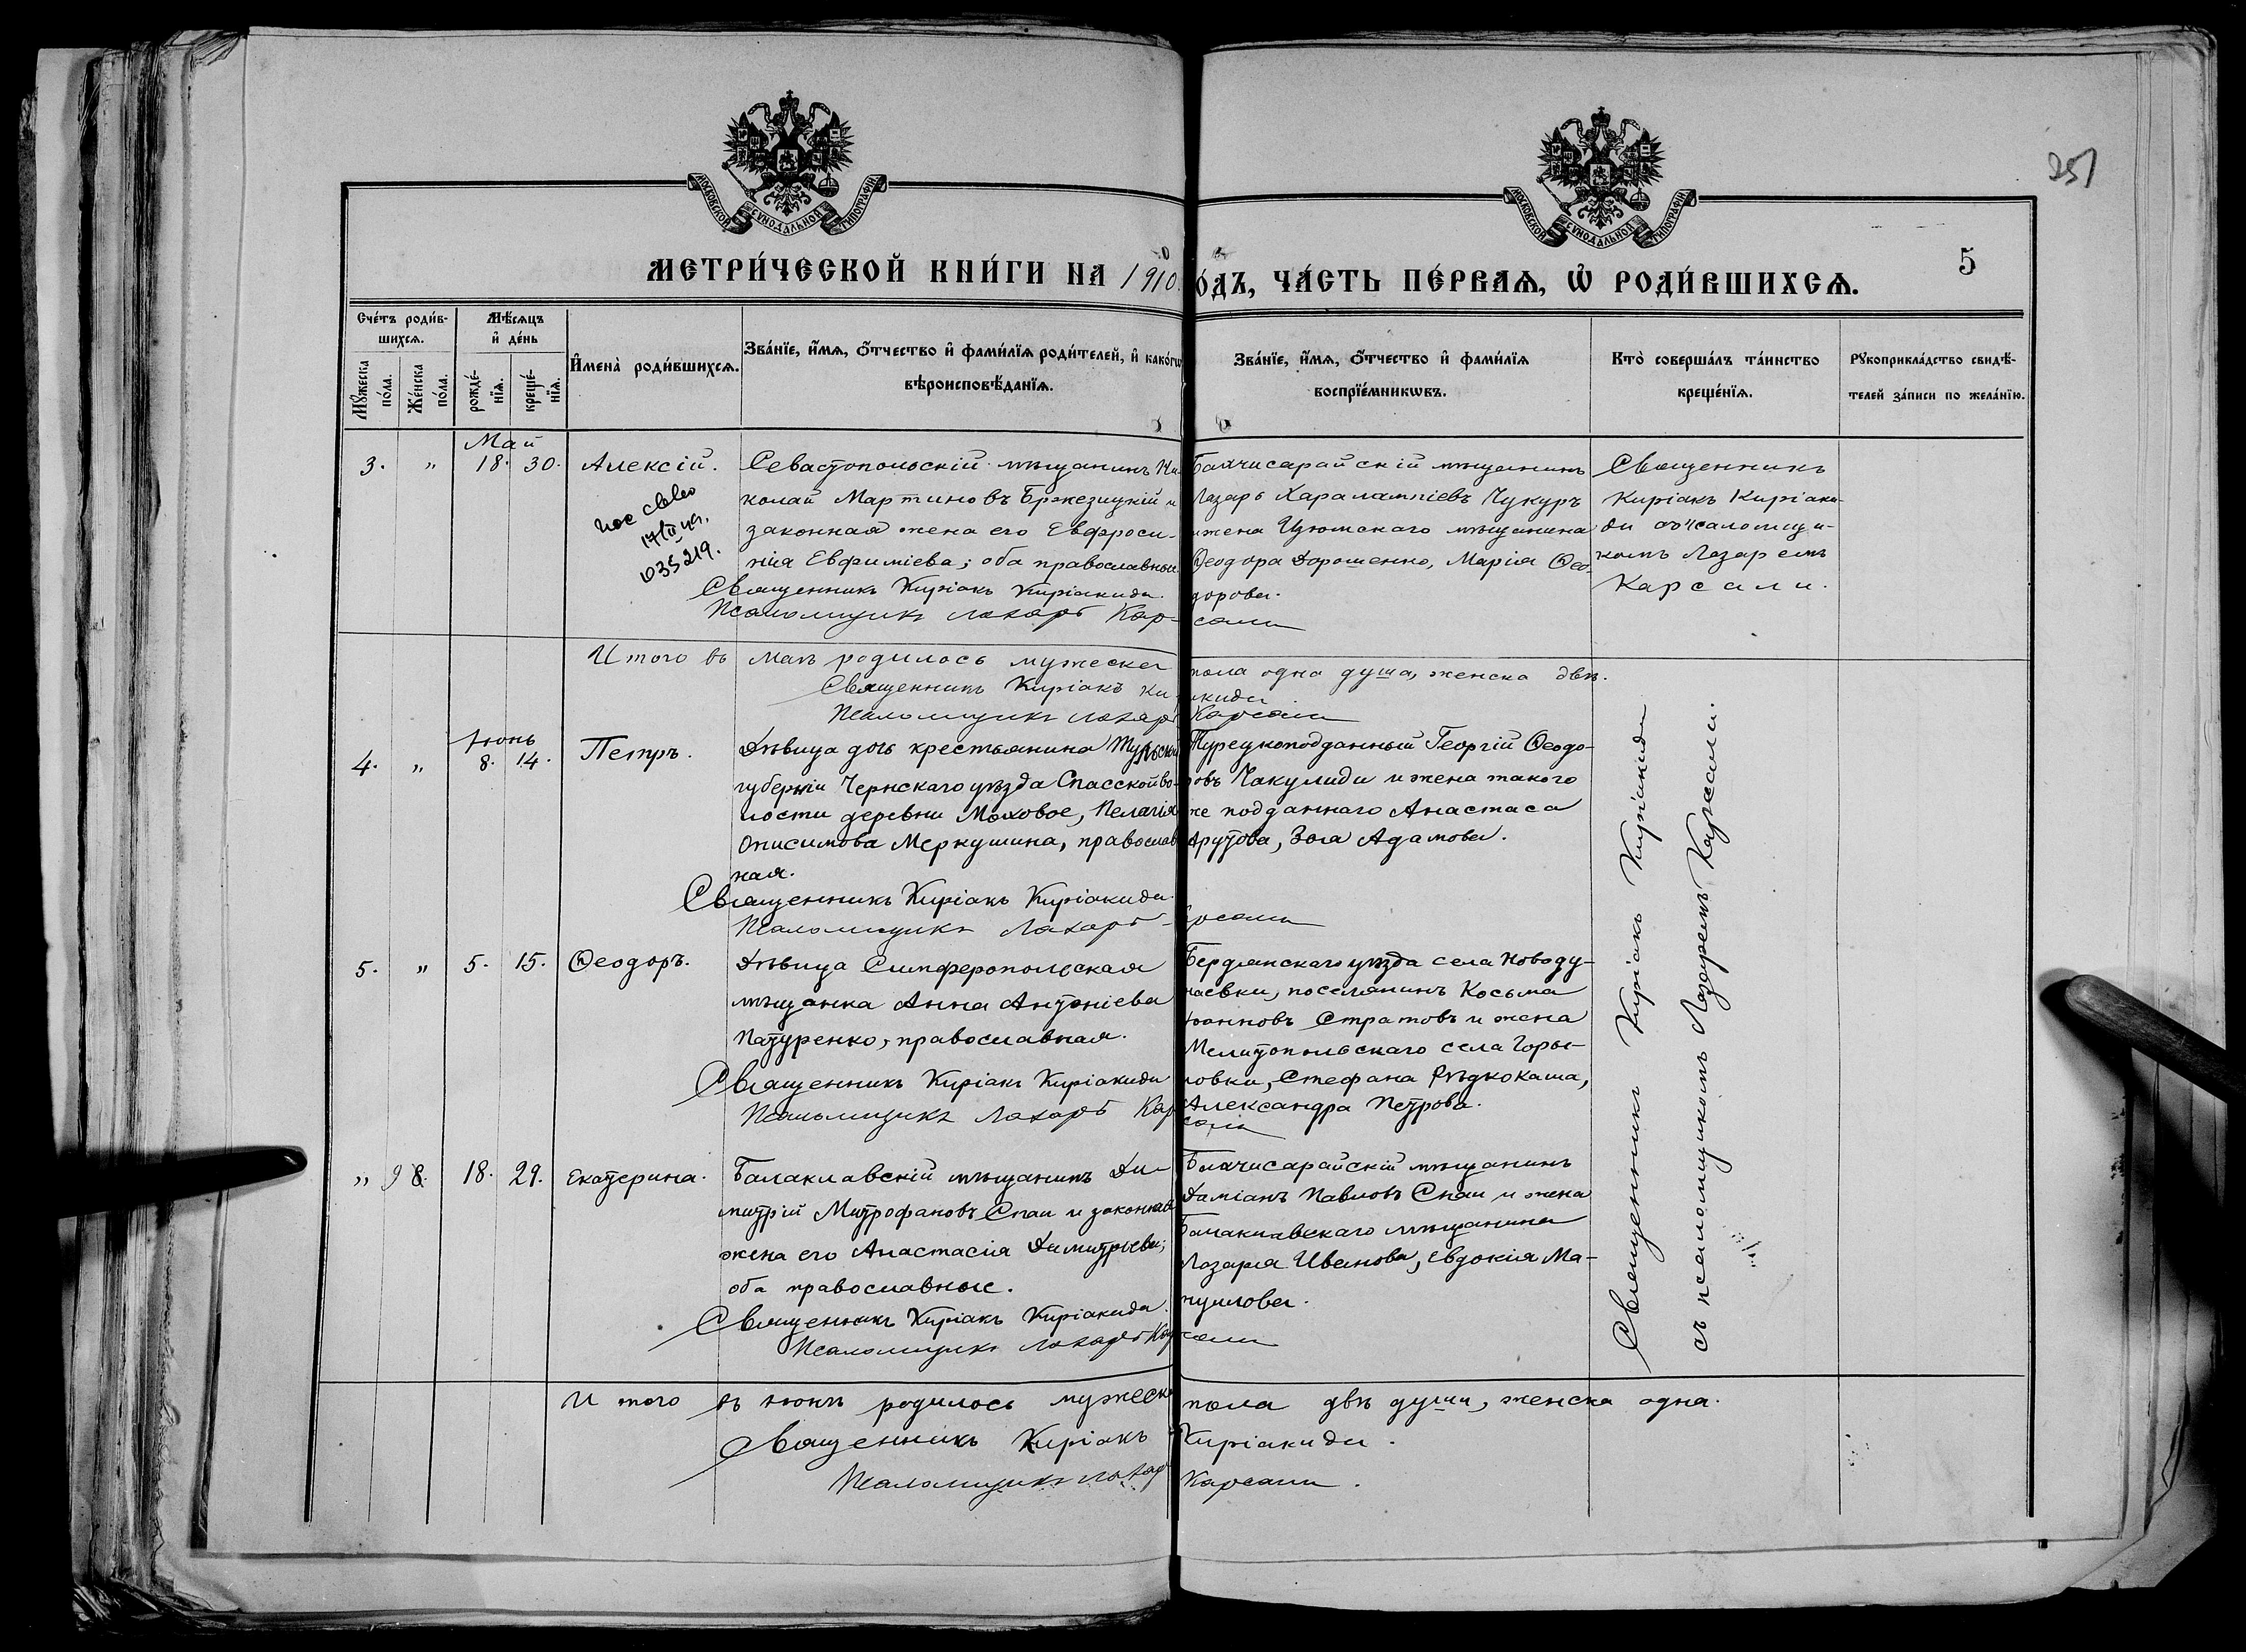 251
МОСКОВСКОЙ СѴНОДАЛЬНОЙ ТИПОГРАФІИ
МОСКОВСКОЙ СѴНОДАЛЬНОЙ ТИПОГРАФІИ
МЕТРИ́ЧЕСКОЙ КНИ́ГИ НА 1910 О́ДЪ, ЧА́СТЬ ПЕ́РВАѦ, Ѡ҆ РОДИ́ВШИХСѦ.
5
Сче́тъ роди́в-
шихсѧ.
Мꙋ́жеска по́ла.
Же́нска по́ла.
Мѣ́сѧцъ
и҆ де́нь
рожде́-
нїѧ.
креще́-
нїѧ.
И҆мена̀ роди́вшихсѧ.
Зва́нїе, и҆́мѧ, ѻ҆́тчество и҆ фами́лїѧ роди́телей, и҆ како́гѡ
вѣроисповѣ́данїѧ.
Зва́нїе, и҆́мѧ, ѻ҆́тчество и҆ фами́лїѧ
воспрїе́мникѡвъ.
Кто̀ соверша́лъ та́инство
креще́нїѧ.
Рꙋкоприкла́дство свидѣ́-
телей за́писи по жела́нїю.
Май
3. " 18. 30. Алексій.
035219.
Севастопольскій мѣщанинъ Ни-
колай Мартиновъ Бржезицкій и
законная жена его Евфроси-
нія Евфиміева; оба православные.
Священникъ Киріакъ Киріакиди.
Псаломщикъ Лазарь Кар-
Бахчисарайскій мѣщанинъ
Лазарь Харалампіевъ Чукуръ
и жена Изюмскаго мѣщанина
Ѳеодора Дорошенко, Марія Ѳео-
дорова.
сали
Священникъ
Киріакъ Киріаки-
ди съ псаломщи-
комъ Лазаремъ
Карсали.
Итого въ маѣ родилось мужеска пола одна душа, женска двѣ.
Священникъ Киріакъ Киріакиди
Псаломщикъ Лазарь Карсали
Іюнь
4. " 8. 14. Петръ.
Дѣвица дочь крестьянина Тульской
губерніи Чернскаго уѣзда Спасской во-
лости деревни Моховое, Пелагія
Онисимова Меркушина, православ-
ная.
Священникъ Киріакъ Киріакиди.
Псаломщикъ Лазарь Карсали
Турецкоподданный Георгій Ѳеодо-
ровъ Чакулиди и жена такого
же подданнаго Анастаса
Арутова, Зоя Адамова.
5. " 5. 15. Ѳеодоръ.
Дѣвица Симферопольская
мѣщанка Анна Антоніева
Патуренко, православная.
Священникъ Киріакъ Киріакиди
Псаломщикъ Лазарь Кар
сали
Бердянскаго уѣзда села Новоду-
наевки, поселянинъ Косьма
Іоанновъ Стратовъ и жена
Мелитопольскаго села Горь-
ловки, Стефана Рѣдкокаша,
Александра Петрова.
" 9 8. 18. 29. Екатерина.
Балаклавскій мѣщанинъ Ди-
митрій Митрофановъ Спаи и законная
жена его Анастасія Димитріева;
оба православные.
Священникъ Киріакъ Киріакиди.
Псаломщикъ Лазарь Карсали
Бахчисарайскій мѣщанинъ
Даміанъ Павловъ Спаи и жена
Балаклавскаго мѣщанина
Лазаря Иванова, Евдокія Ма-
нуилова.
Священникъ Киріакъ Киріакиди
съ псаломщикомъ Лазаремъ Карсали.
Итого въ іюнѣ родилось мужеска пола двѣ души, женска одна.
Священникъ Киріакъ Киріакиди.
Псаломщикъ Лазарь Карсали.